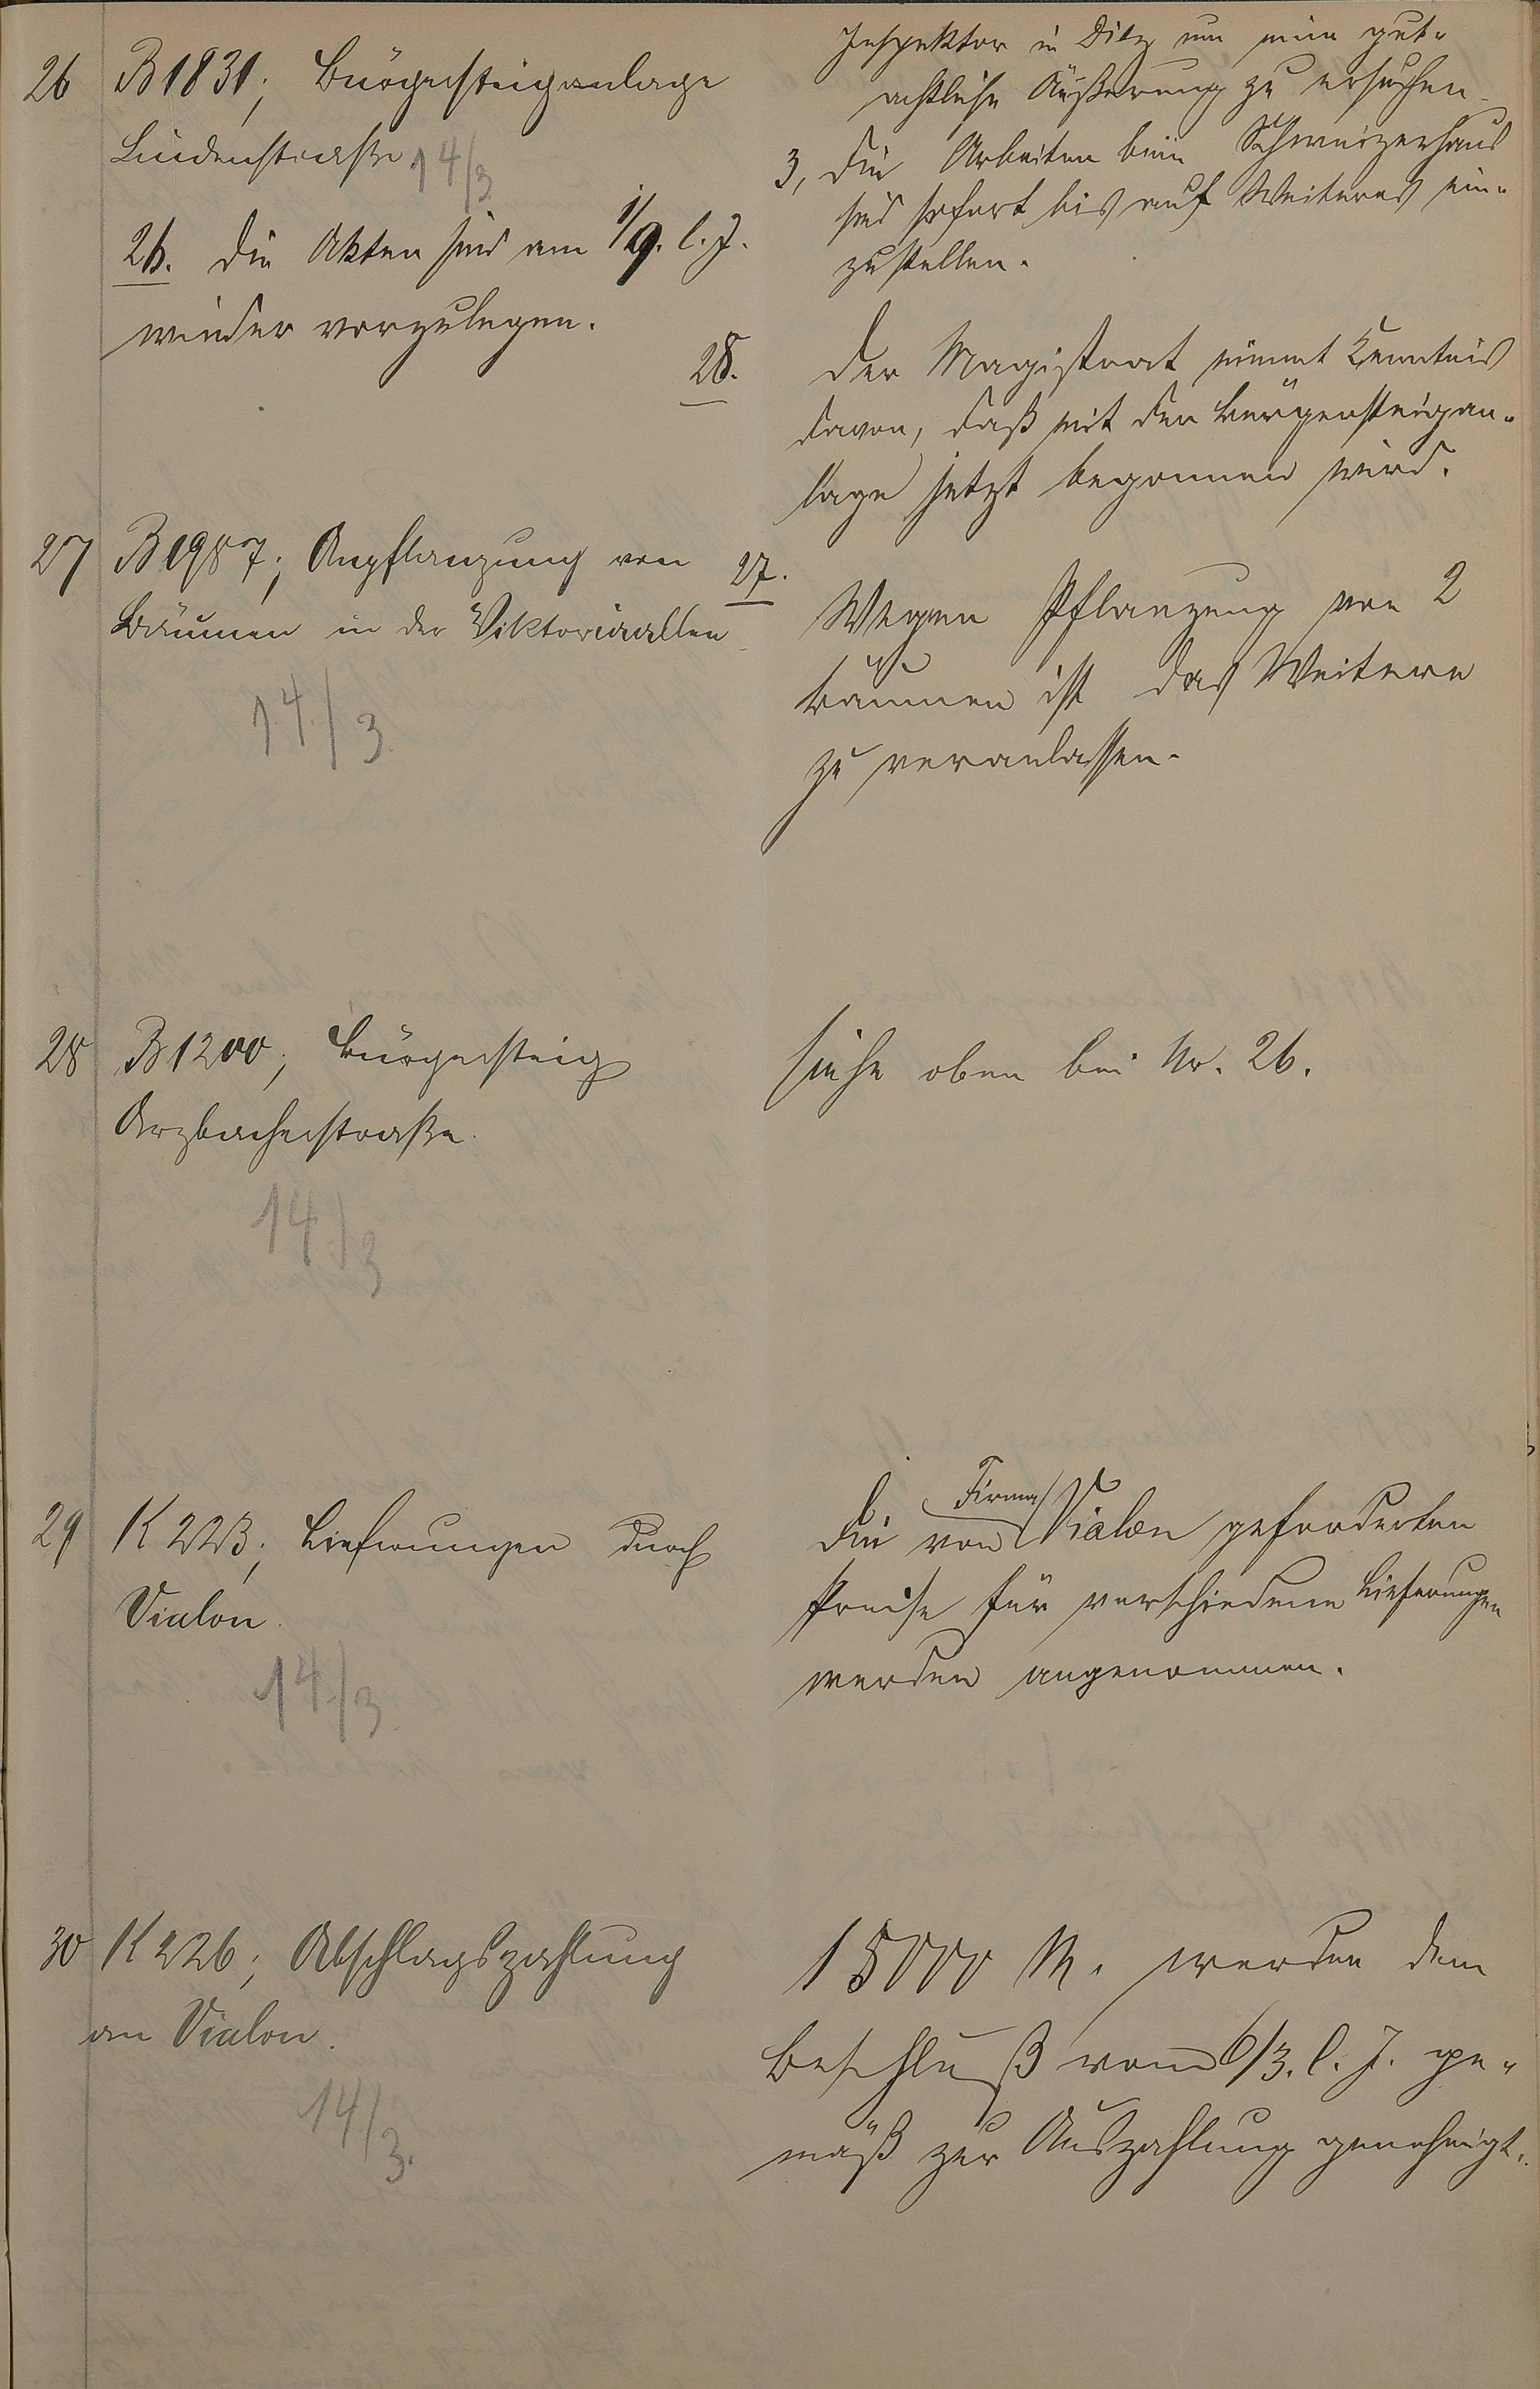 Inspektor in Diez um eine gut-
achtliche Äußerung zu ersuchen.
3, Die Arbeiten beim Schweizerhaus
sind sofort bis auf Weiteres ein-
zustellen.
26 B 1831; Bürgersteiganlage
Lindenstraße
14/3
26. Die Akten sind am 1/9. l. J.
wieder vorzulegen.
28. Der Magistrat nimmt Kenntnis
davon, daß mit der Bürgersteigan-
lage jetzt begonnen wird.
27 B 1987; Anpflanzung von
Bäumen in der Viktoriaallee
14/3
27. Wegen Pflanzung von 2
Bäumen ist das Weitere
zu veranlassen.
28 B 1200; Bürgersteig
Arzbacherstraße.
14/3
Siehe oben bei Nr. 26.
29 K 223; Lieferungen durch
Vialon.
14/3
Die von Firma Vialon geforderten
Preise für verschiedene Lieferungen
werden angenommen.
30 K 226; Abschlagszahlung
an Vialon.
14/3.
15000 M. werden dem
Beschluß vom 6/3. l. J. ge-
mäß zur Auszahlung genehmigt.